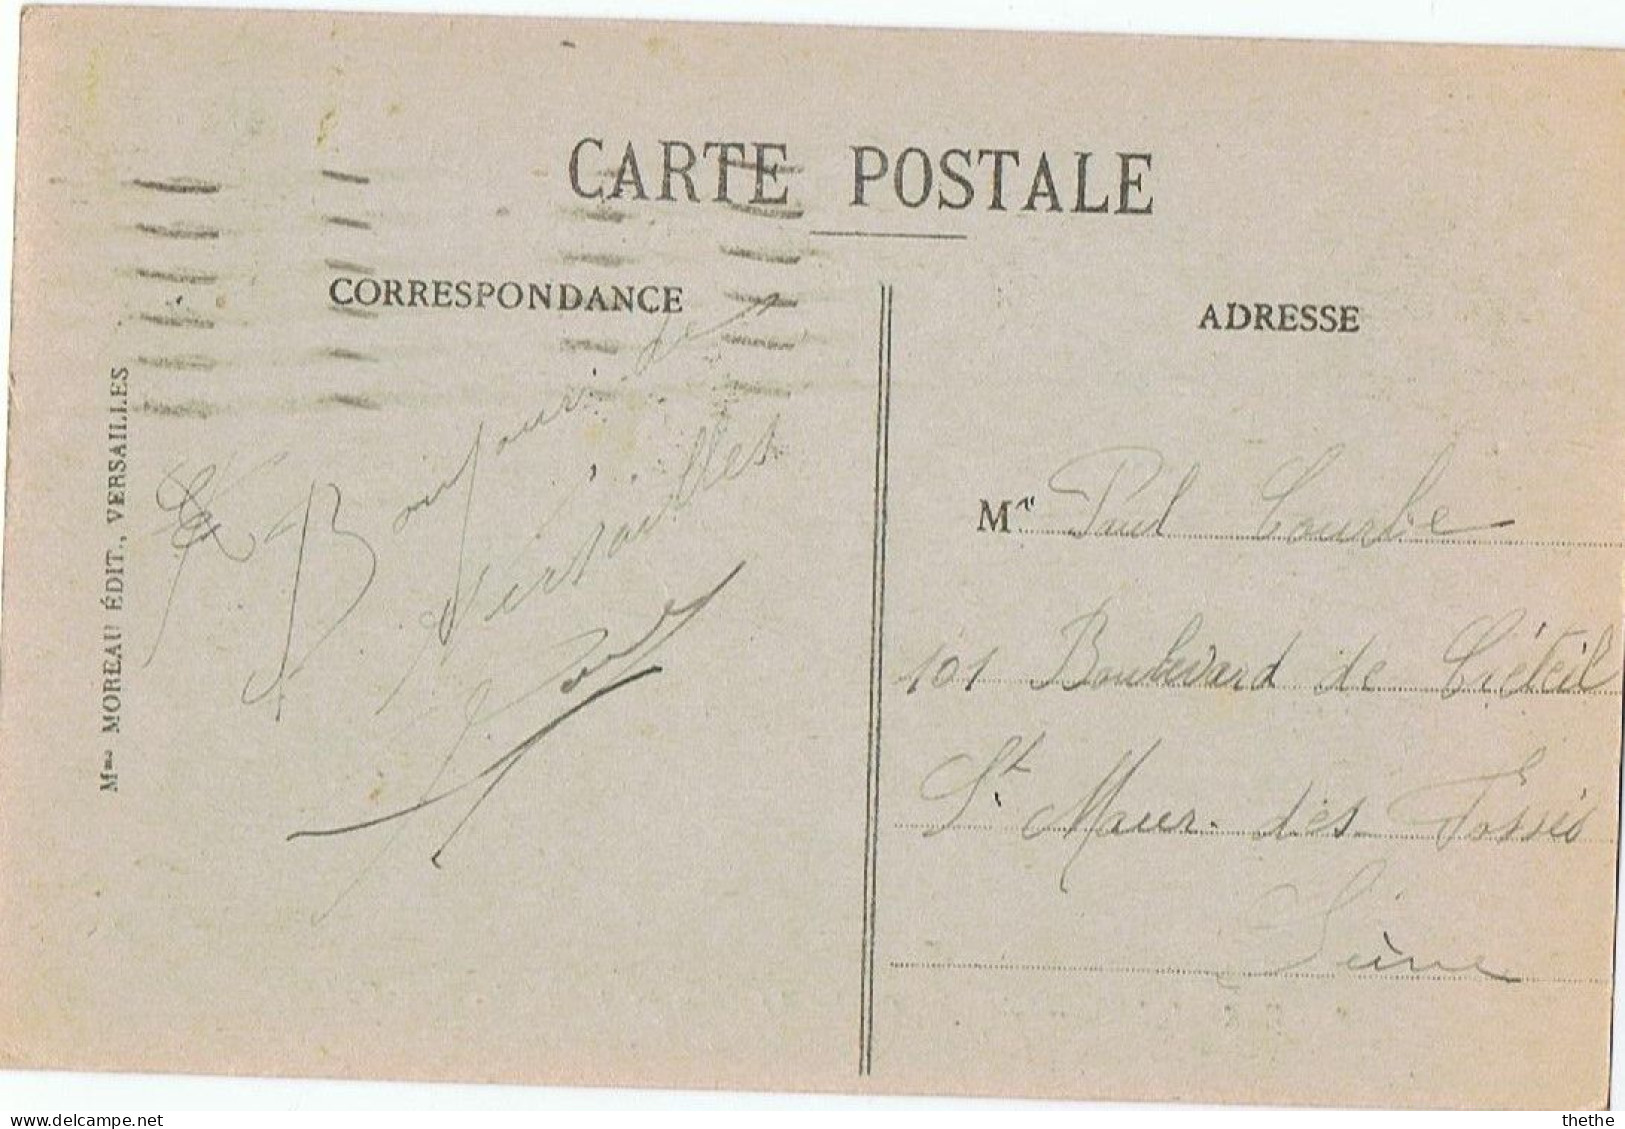 CARTE POSTALE
CORRESPONDANCE
ADRESSE
Mme MOREAU ÉDIT., VERSAILLES
Bonjour de
Versailles
Mr Paul Courbe
101 Boulevard de Créteil
St Maur. des Fossés
Seine
thethe